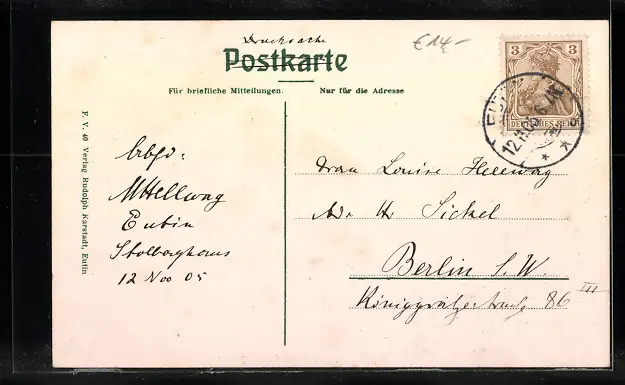 Drucksache
€14,-
Postkarte
Für briefliche Mitteilungen.
Nur für die Adresse
3 3
DEUTSCHES REICH
EUTIN
12.11.05
F. V. 40 Verlag Rudolph Karstadt, Eutin
Abs:
Hellwag
Eutin
Stolberghaus
12 Nov 05
Frau Louise Hellwag
Sickel
Berlin S. W.
Königgrätzerstraße 86 III